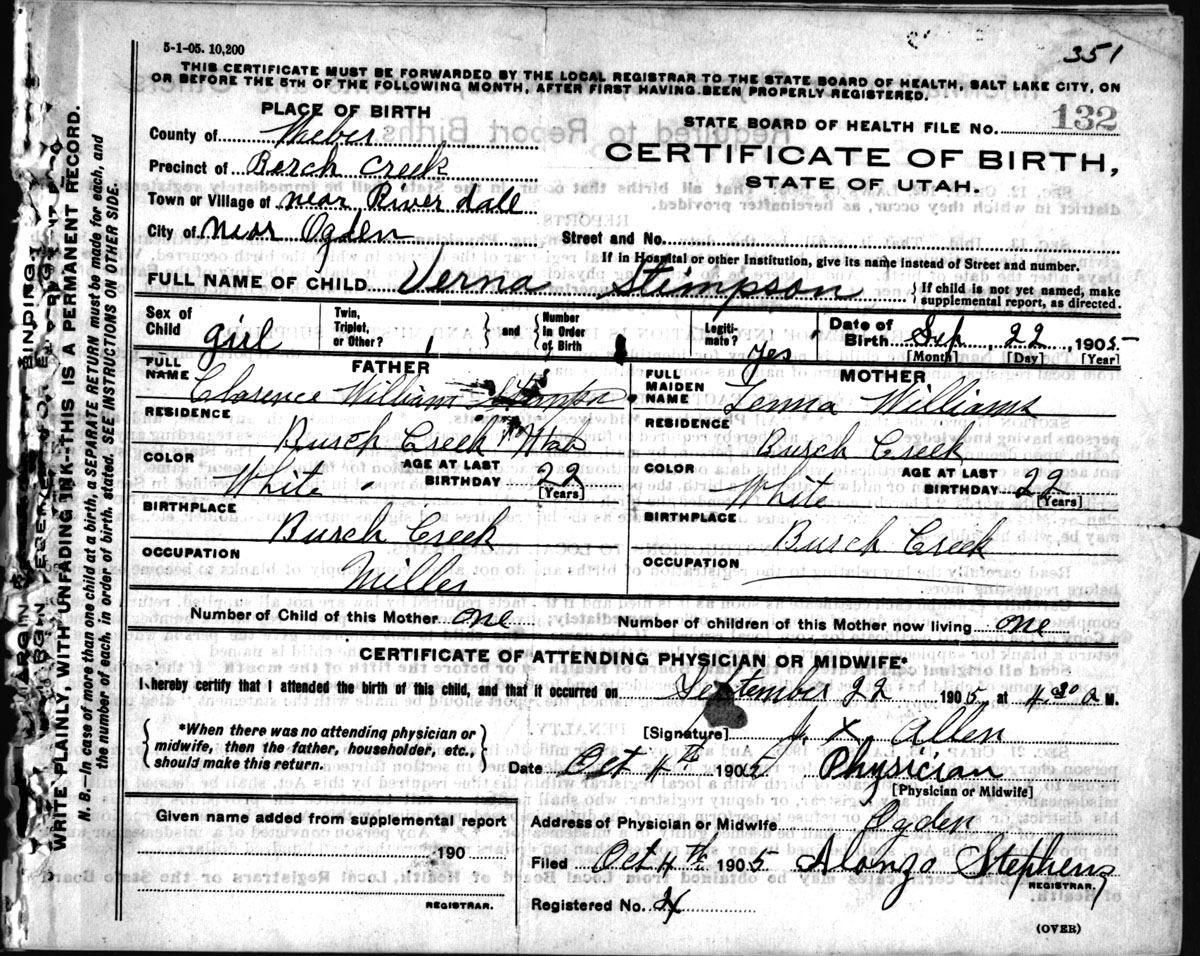 5-1-05. 10,200
351
THIS CERTIFICATE MUST BE FORWARDED BY THE LOCAL REGISTRAR TO THE STATE BOARD OF HEALTH, SALT LAKE CITY, ON
OR BEFORE THE 5TH OF THE FOLLOWING MONTH, AFTER FIRST HAVING BEEN PROPERLY REGISTERED.
PLACE OF BIRTH
STATE BOARD OF HEALTH FILE NO. 132
County of Weber
CERTIFICATE OF BIRTH,
Precinct of Berch Creek
STATE OF UTAH.
Town or Village of near River dale
City of near Ogden
Street and No.
If in Hospital or other Institution, give its name instead of Street and number.
FULL NAME OF CHILD Verna Stimpson
If child is not yet named, make
supplemental report, as directed.
Sex of Child girl
Twin, Triplet, or Other?
and
Number in Order of Birth
Legiti-mate? yes
Date of Birth Sep 22, 1905
[Month] [Day] [Year]
FATHER
FULL NAME Clarence William Stimpson
RESIDENCE
Burch Creek Utah
COLOR White
AGE AT LAST BIRTHDAY 22
[Years]
BIRTHPLACE
Burch Creek
OCCUPATION
Miller
MOTHER
FULL MAIDEN NAME Lenna Williams
RESIDENCE
Burch Creek
COLOR White
AGE AT LAST BIRTHDAY 22
[Years]
BIRTHPLACE
Burch Creek
OCCUPATION
Number of Child of this Mother one
Number of children of this Mother now living one
CERTIFICATE OF ATTENDING PHYSICIAN OR MIDWIFE*
I hereby certify that I attended the birth of this child, and that it occurred on September 22 1905, at 4.30 a M.
*When there was no attending physician or
midwife, then the father, householder, etc.,
should make this return.
[Signature] Allen
Date Oct 4th 1905 Physician
[Physician or Midwife]
Given name added from supplemental report
190
REGISTRAR.
Address of Physician or Midwife Ogden
Filed Oct 4th 1905 Alonzo Stephens
REGISTRAR.
Registered No.
(OVER)
WRITE PLAINLY, WITH UNFADING INK--THIS IS A PERMANENT RECORD.
N. B.—In case of more than one child at a birth, a SEPARATE RETURN must be made for each, and
the number of each, in order of birth, stated. SEE INSTRUCTIONS ON OTHER SIDE.